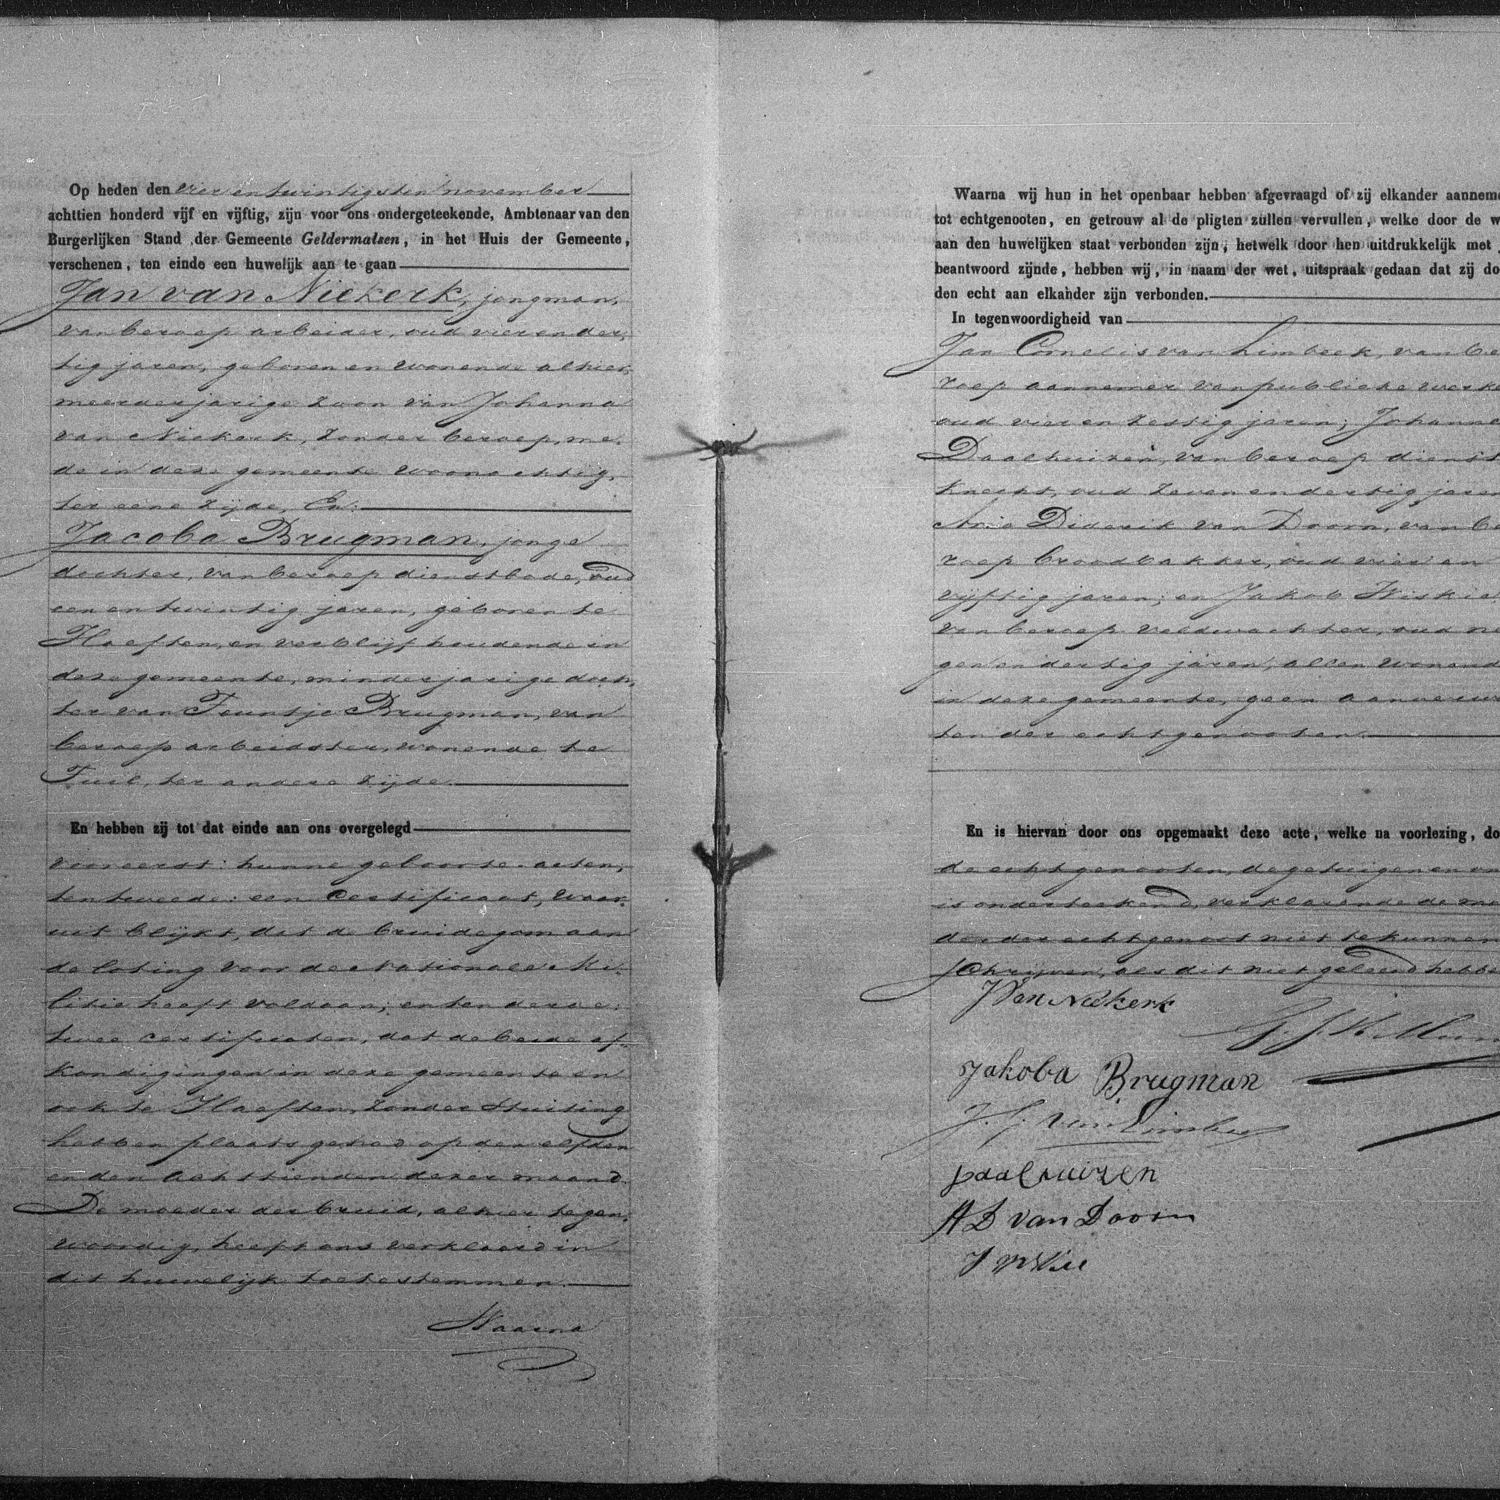 Op heden den vier en twintigsten november
achttien honderd vijf en vijftig, zijn voor ons ondergeteekende, Ambtenaar van den
Burgerlijken Stand der Gemeente Geldermalsen, in het Huis der Gemeente,
verschenen, ten einde een huwelijk aan te gaan
Jan van Niekerk, jongman,
van beroep arbeider, oud vier en der-
tig jaren, geboren en wonende alhier,
meerderjarige zoon van Johanna
van Niekerk, zonder beroep, me-
de in deze gemeente woonachtig,
ter eene zijde, En:
Jacoba Brugman, jonge
dochter, van beroep dienstbode, oud
een en twintig jaren, geboren te
Haeften, en verblijf houdende in
deze gemeente, minderjarige doch-
ter van Teuntje Brugman, van
beroep arbeidster, wonende te
Tuil, ter andere zijde
En hebben zij tot dat einde aan ons overgelegd
vooreerst: hunne geboorte-acten,
ten tweede: een certificaat, waar-
uit blijkt, dat de bruidegom aan
de loting voor de Nationale Mi-
litie heeft voldaan; en ten derde:
twee certificaten, dat de beide af-
kondigingen in deze gemeente en
ook te Haeften, zonder stuiting
hebben plaats gehad op den elfden
en den achttienden dezer maand.
De moeder der bruid, alhier tegen-
woordig, heeft ons verklaard in
dit huwelijk toetestemmen.
Waarna
Waarna wij hun in het openbaar hebben afgevraagd of zij elkander aanneme
tot echtgenooten, en getrouw al de pligten zullen vervullen, welke door de w
aan den huwelijken staat verbonden zijn, hetwelk door hen uitdrukkelijk met
beantwoord zijnde, hebben wij, in naam der wet, uitspraak gedaan dat zij do
den echt aan elkander zijn verbonden.
In tegenwoordigheid van
Jan Cornelis van Limbeek, van be
roep aannemer van publieke werke
oud vier en zestig jaren; Johanne
Daalhuizen, van beroep dienst
knecht, oud zeven en dertig jaren
Arie Diderik van Doorn, van be
roep broodbakker, oud vier en
vijftig jaren; en Jakob Wiskie
van beroep veldwachter, oud ne
gen en dertig jaren, allen wonend
in deze gemeente, geen aanverwan
ten der echtgenooten
En is hiervan door ons opgemaakt deze acte, welke na voorlezing, do
de echtgenooten, de getuigen en on
is onderteekend, verklarende de moe
der der echtgenoot niet te kunnen
schrijven, als dit niet geleerd hebbe
J Van Niekerk
Jakoba Brugman
J. C. van Limbeek
Daalhuizen
A D van Doorn